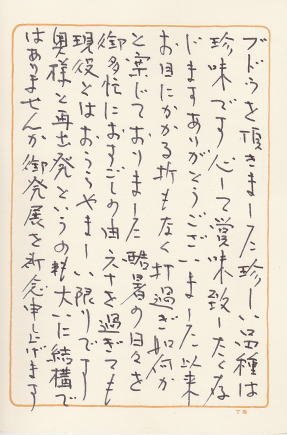 ブドウを頂きました珍しい品種は
珍味です心して賞味致したくな
じますありがとうございました以来
お目にかかる折もなく打過ぎ如何か
と案じておりました酷暑の日々を
御多忙におすごしの由え寸を過ぎても
現役とはおうらやましい限りです
奥様と再出発というの も大いに結構で
はありませんか御発展を祈念申し上げます